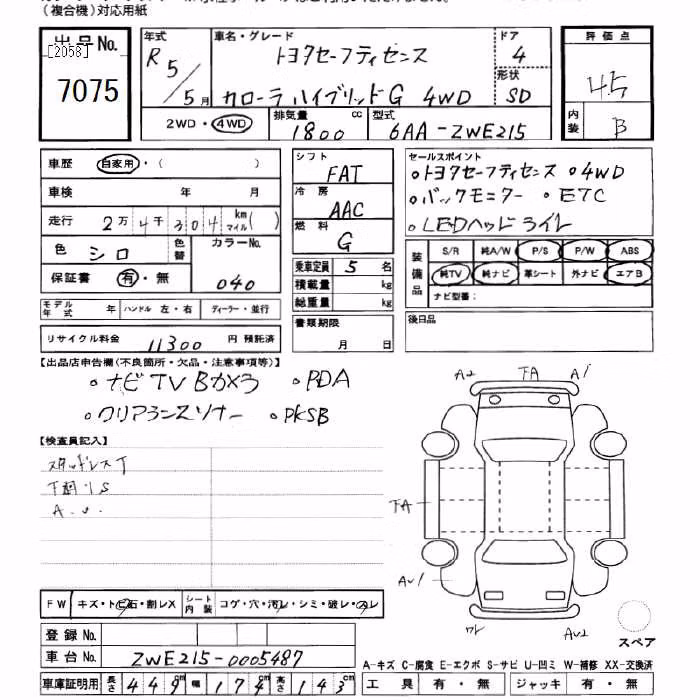 (複合機)対応用紙
出品No.
[2058]
7075
年式
R 5/5 月
車名・グレード
トヨタセーフティセンス
カローラハイブリッドG 4WD
ドア
4
形状
SD
評価点
4.5
内装
B
2WD・4WD
排気量
1800 cc
型式
6AA-ZWE215
車歴 自家用・( )
車検 年 月
走行 2万4千304 km マイル( )
色 シロ
色替
カラーNo.
040
保証書 有・無
モデル年式 年 ハンドル 左・右 ディーラー・並行
リサイクル料金 11300 円 預託済
シフト
FAT
冷房
AAC
燃料
G
乗車定員 5 名
積載量 kg
総重量 kg
書類期限
月 日
セールスポイント
・トヨタセーフティセンス ・4WD
・バックモニター ・ETC
・LEDヘッドライト
装備品
S/R 純A/W P/S P/W ABS
純TV 純ナビ 革シート 外ナビ エアB
ナビ型番:
後日品
【出品店申告欄(不良箇所・欠品・注意事項等)】
・ナビTV Bカメラ ・PDA
・クリアランスソナー ・PKSB
【検査員記入】
スタッドレスT
下廻りS
A.U.
A2 TA A1
TA
AU1
ワレ AU2
スペア
FW キズ・トビ石・割レX
シート内装 コゲ・穴・汚レ・シミ・破レ・スレ
登録No.
車台No. ZWE215-0005487
A-キズ C-腐食 E-エクボ S-サビ U-凹ミ W-補修 XX-交換済
車庫証明用 長さ 449cm 幅 174cm 高さ 143cm
工具 有・無 ジャッキ 有・無